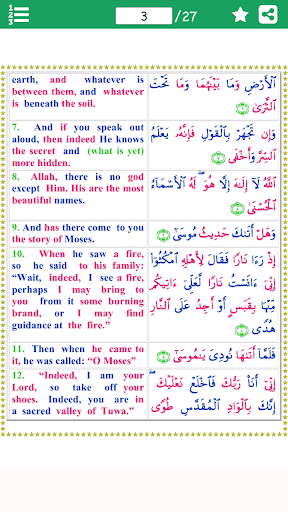 1
2
3
3 /27
earth, and whatever is
between them, and whatever
is beneath the soil.
ٱلْأَرْضِ وَمَا بَيْنَهُمَا وَمَا تَحْتَ
ٱلثَّرَىٰ
7. And if you speak out
aloud, then indeed He knows
the secret and (what is yet)
more hidden.
وَإِن تَجْهَرْ بِٱلْقَوْلِ فَإِنَّهُۥ يَعْلَمُ
ٱلسِّرَّ وَأَخْفَى
8. Allah, there is no god
except Him. His are the most
beautiful names.
ٱللَّهُ لَآ إِلَٰهَ إِلَّا هُوَ ۖ لَهُ ٱلْأَسْمَآءُ
ٱلْحُسْنَىٰ
9. And has there come to you
the story of Moses.
وَهَلْ أَتَىٰكَ حَدِيثُ مُوسَىٰٓ
10. When he saw a fire,
so he said to his family:
“Wait, indeed, I see a fire,
perhaps I may bring to
you from it some burning
brand, or I may find
guidance at the fire.”
إِذْ رَءَا نَارًا فَقَالَ لِأَهْلِهِ ٱمْكُثُوٓا۟
إِنِّىٓ ءَانَسْتُ نَارًا لَّعَلِّىٓ ءَاتِيكُم
مِّنْهَا بِقَبَسٍ أَوْ أَجِدُ عَلَى ٱلنَّارِ
هُدًى
11. Then when he came to
it, he was called: “O Moses”
فَلَمَّآ أَتَىٰهَا نُودِىَ يَٰمُوسَىٰٓ
12. “Indeed, I am your
Lord, so take off your
shoes. Indeed, you are in
a sacred valley of Tuwa.”
إِنِّىٓ أَنَا۠ رَبُّكَ فَٱخْلَعْ نَعْلَيْكَ ۖ
إِنَّكَ بِٱلْوَادِ ٱلْمُقَدَّسِ طُوًى